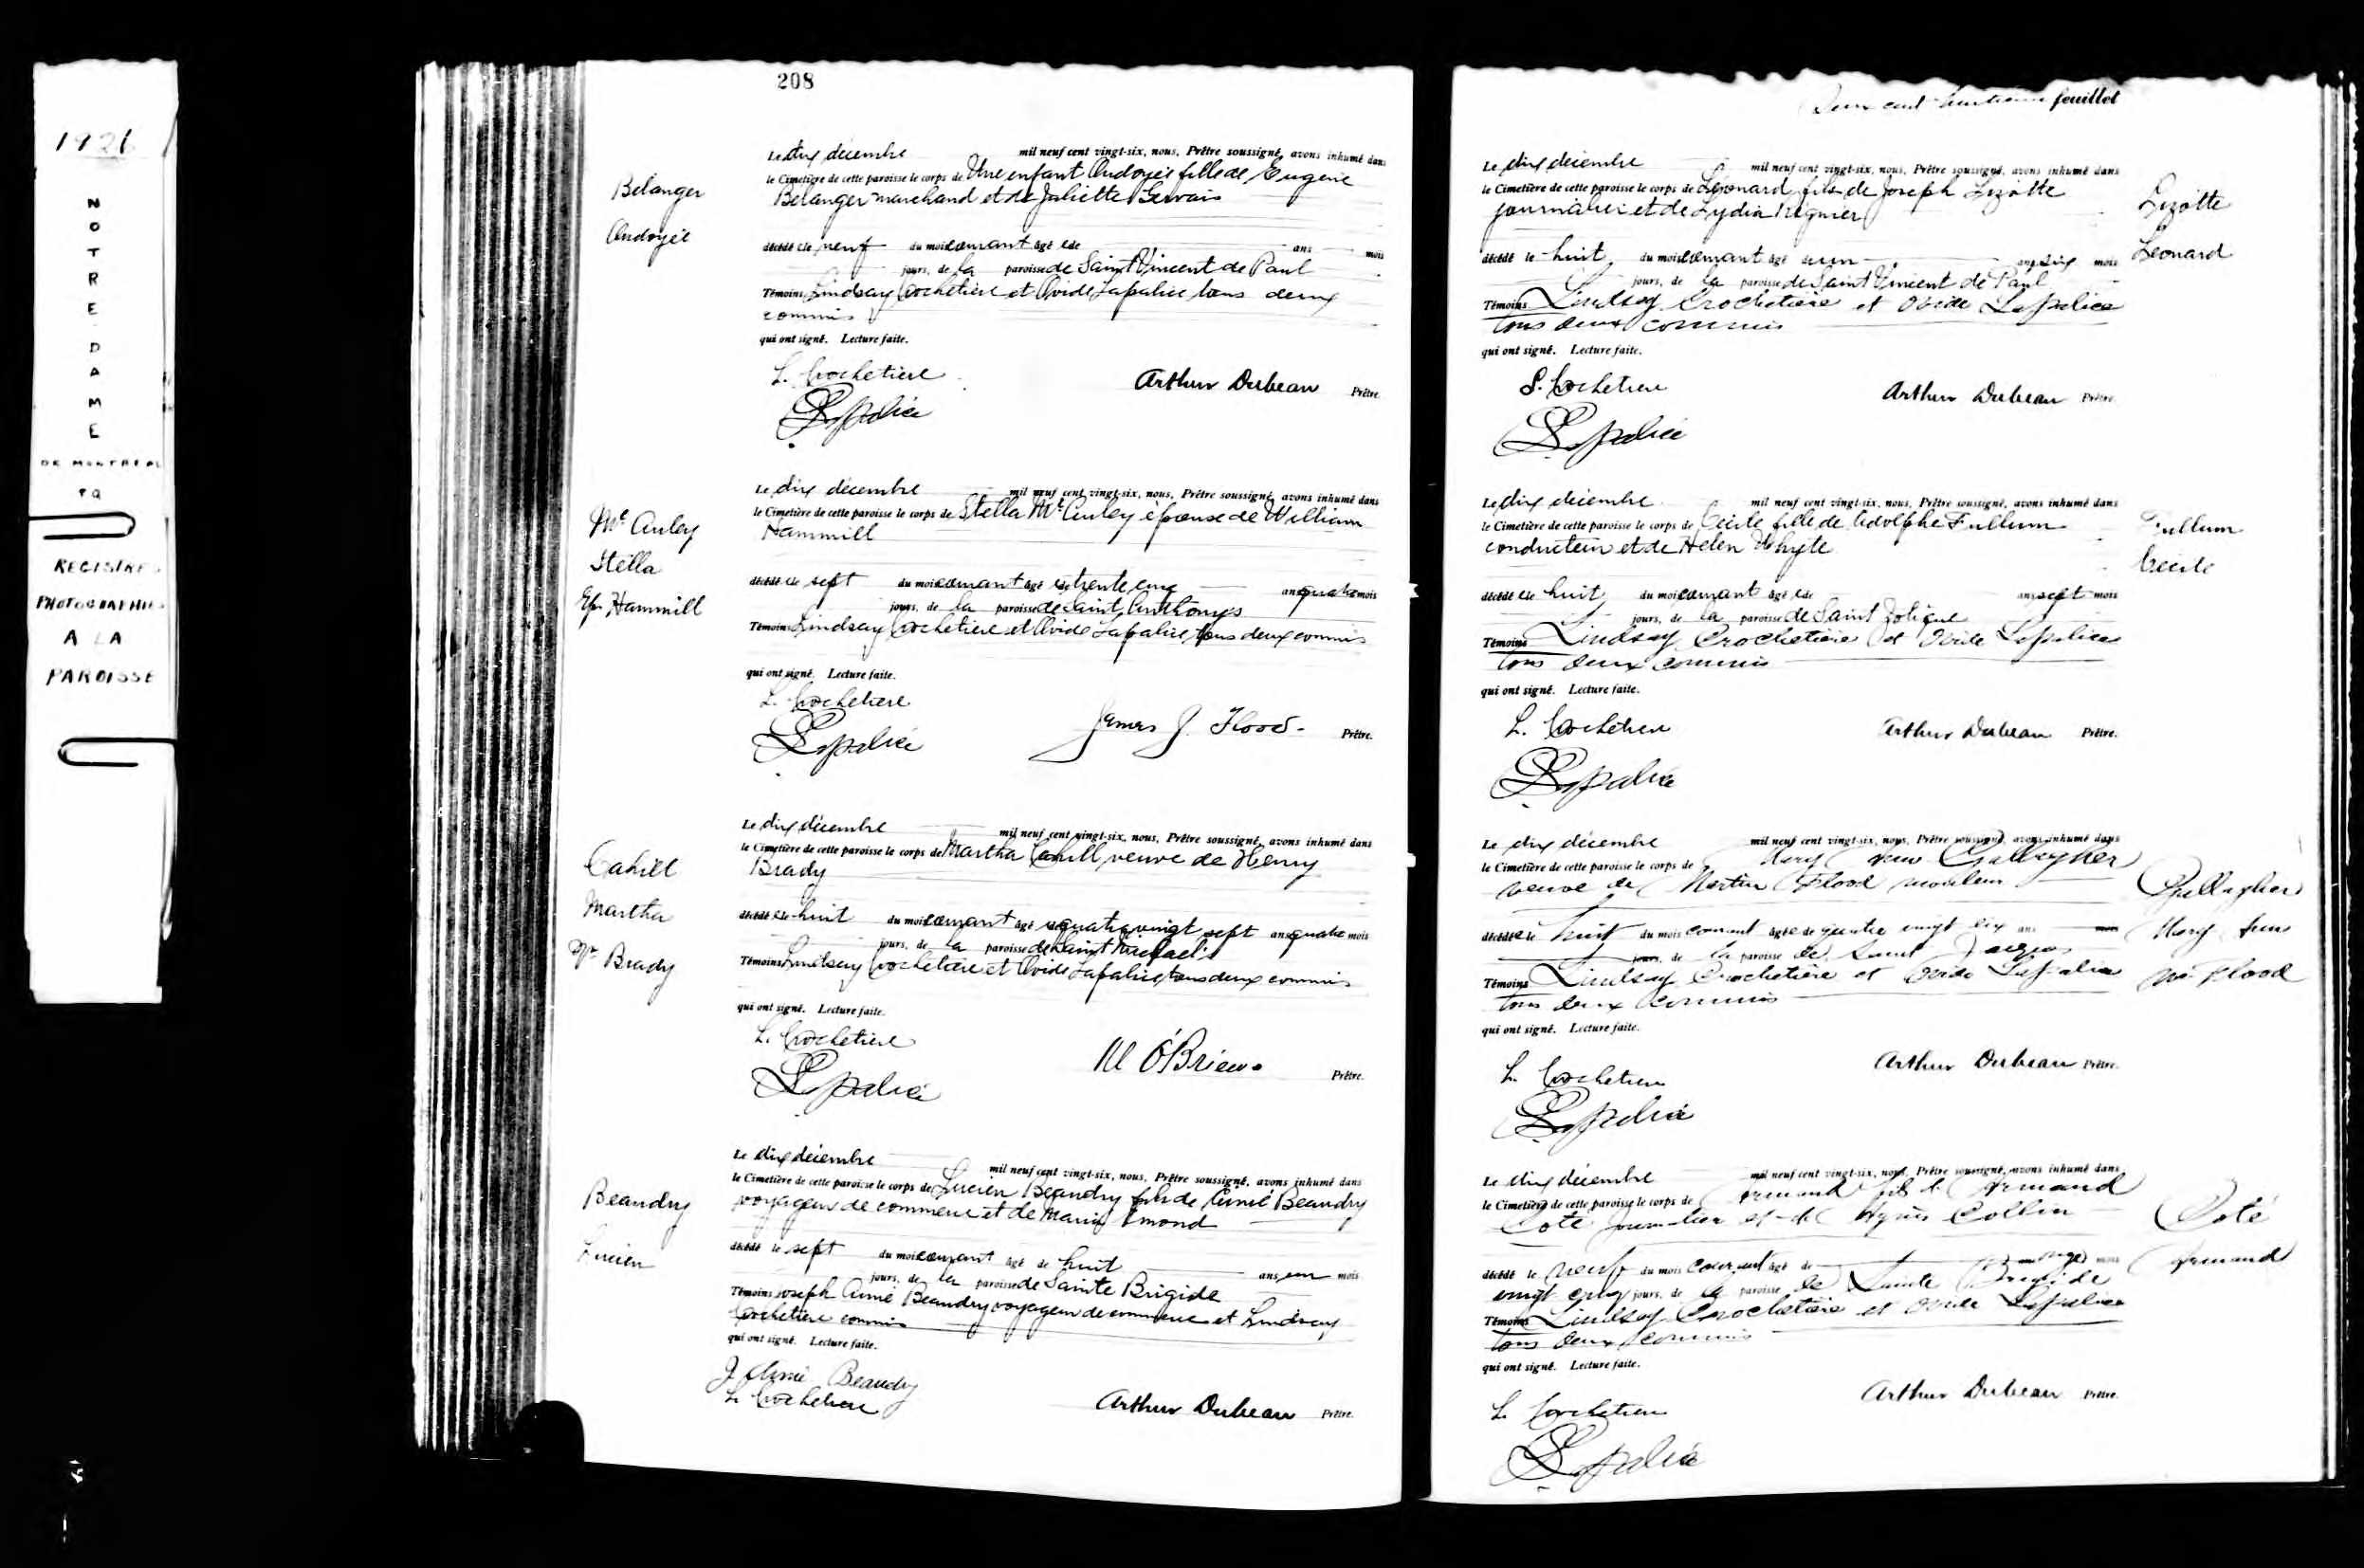 1926
NOTRE DAME
DE MONTREAL
PQ
REGISTRES
PHOTOGRAPHIES
A LA
PAROISSE
208
Belanger
Ondoyée
Le dix décembre mil neuf cent vingt-six, nous, Prêtre soussigné, avons inhumé dans
le Cimetière de cette paroisse le corps de Une enfant Ondoyée fille de Eugene
Bélanger marchand et de Juliette Gervais
décédée le neuf du mois courant âgée de ans mois
jours, de la paroisse de Saint Vincent de Paul
Témoins Lindsay Crochetière et Ovide Lapalice tous deux
commis
qui ont signé. Lecture faite.
L. Crochetiere
Arthur Dubeau Prêtre.
Lapalice
Mc Auley
Stella
Ep. Hammill
Le dix décembre mil neuf cent vingt-six, nous, Prêtre soussigné, avons inhumé dans
le Cimetière de cette paroisse le corps de Stella Mc Auley épouse de William
Hammill
décédée le sept du mois courant âgée de trente cinq ans quatre mois
jours, de la paroisse de Saint Anthony's
Témoins Lindsay Crochetiere et Ovide Lapalice, tous deux commis
qui ont signé. Lecture faite.
L. Crochetiere
James J. Flood. Prêtre.
Lapalice
Cahill
Martha
Vve Brady
Le dix décembre mil neuf cent vingt-six, nous, Prêtre soussigné, avons inhumé dans
le Cimetière de cette paroisse le corps de Martha Cahill veuve de Henry
Brady
décédée le huit du mois courant âgée de quatre vingt sept ans quatre mois
jours, de la paroisse de Saint Michael's
Témoins Lindsay Crochetière et Ovide Lapalice, tous deux commis
qui ont signé. Lecture faite.
L. Crochetiere
M O'Brien. Prêtre.
Lapalice
Beaudry
Lucien
Le dix décembre mil neuf cent vingt-six, nous, Prêtre soussigné, avons inhumé dans
le Cimetière de cette paroisse le corps de Lucien Beaudry fils de Aimé Beaudry
voyageur de commerce et de Marie Emond
décédé le sept du mois courant âgé de huit ans un mois
jours, de la paroisse de Sainte Brigide
Témoins Joseph Aimé Beaudry voyageur de commerce et Lindsay
Crochetiere commis
qui ont signé. Lecture faite.
J Aimé Beaudry
L. Crochetiere
Arthur Dubeau Prêtre.
Deux cent huitième feuillet
Le dix décembre mil neuf cent vingt-six, nous, Prêtre soussigné, avons inhumé dans
le Cimetière de cette paroisse le corps de Léonard fils de Joseph Lizotte
journalier et de Lydia Régnier
décédé le huit du mois courant âgé de un ans six mois
jours, de la paroisse de Saint Vincent de Paul
Témoins Lindsay Crochetière et Ovide Lapalice
tous deux commis
qui ont signé. Lecture faite.
L. Crochetiere
Arthur Dubeau Prêtre.
Lapalice
Lizotte
Léonard
Le dix décembre mil neuf cent vingt-six, nous, Prêtre soussigné, avons inhumé dans
le Cimetière de cette paroisse le corps de Cécile fille de Adolphe Fullum
conducteur et de Helen Whyte
décédée le huit du mois courant âgée de ans sept mois
jours, de la paroisse de Saint Zotique
Témoins Lindsay Crochetière et Ovide Lapalice
tous deux commis
qui ont signé. Lecture faite.
L. Crochetiere
Arthur Dubeau Prêtre.
Lapalice
Fullum
Cecile
Le dix décembre mil neuf cent vingt-six, nous, Prêtre soussigné, avons inhumé dans
le Cimetière de cette paroisse le corps de Mary Ann Gallagher
veuve de Martin Flood mouleur
décédée le huit du mois courant âgée de quatre vingt six ans
jours, de la paroisse de Saint Jacques
Témoins Lindsay Crochetière et Ovide Lapalice
tous deux commis
qui ont signé. Lecture faite.
L. Crochetiere
Arthur Dubeau Prêtre.
Lapalice
Gallagher
Mary Ann
Vve Flood
Le dix décembre mil neuf cent vingt-six, nous, Prêtre soussigné, avons inhumé dans
le Cimetière de cette paroisse le corps de Armand fils de Armand
Coté journalier et de Agnès Collin
décédé le neuf du mois courant âgé de mois
vingt cinq jours, de la paroisse de Sainte Brigide
Témoins Lindsay Crochetière et Ovide Lapalice
tous deux commis
qui ont signé. Lecture faite.
L. Crochetiere
Arthur Dubeau Prêtre.
Lapalice
Coté
Armand